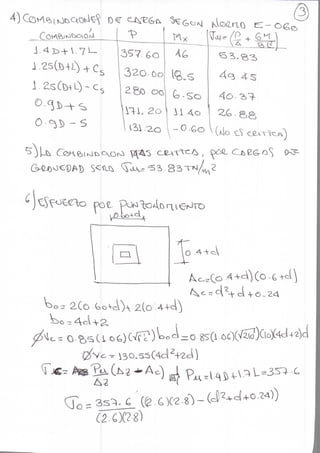 3
4) COMBINACIONES DE CARGA SEGUN NORMA E-060
COMBINACIÓN P Mx Tu=(P/A + 6M/BL²)
1.4D+1.7L 357.60 46 53.83
1.25(D+L)+Cs 320.00 18.5 49.45
1.25(D+L)-Cs 280.00 6.50 40.37
0.9D+S 171.20 11.40 26.88
0.9D-S 131.20 -0.60 (No es critica)
5) LA COMBINACION MAS CRITICA, POR CARGAS DE
GRAVEDAD SERA Tu=53.83 TN/m²
6) ESFUERZO POR PUNZONAMIENTO
0.4+d
Ac=(0.4+d)(0.6+d)
Ac=d²+d+0.24
bo=2(0.60+d)+2(0.4+d)
bo=4d+2
ØVc=0.85(1.06)(√f'c)bod=0.85(1.06)(√210)(10)(4d+2)d
ØVc=130.55(4d²+2d)
Pu/Az (Az-Ac) Pu=1.4D+1.7L=357.6
Uo=357.6/(2.6)(2.8) ((2.6)(2.8)-(d²+d+0.24))